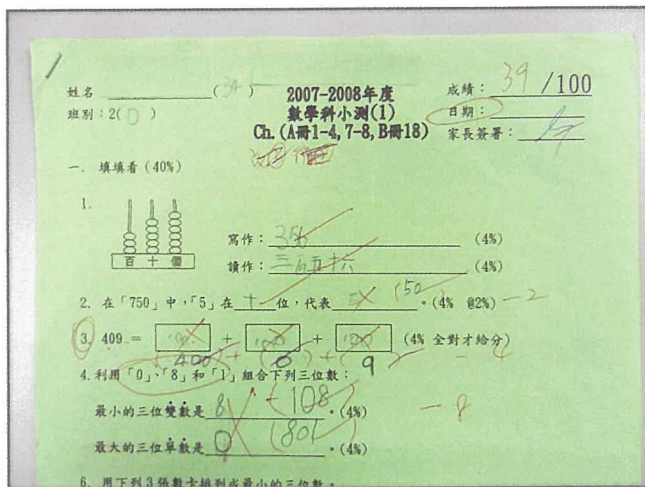 姓名 (34)
2007-2008年度
成績: 39 /100
班別:2(D)
數學科小測(1)
日期:
Ch.(A冊1-4,7-8,B冊18)
家長簽署:
一. 填填看 (40%)
1.
百 十 個
寫作: 356 (4%)
讀作: 三百五十六 (4%)
2. 在「750」中,「5」在 十 位,代表 (50)。(4% @2%) -2
3. 409 = + + (4% 全對才給分)
(400) + (0) + ( 9 ) -4
4. 利用「0」、「8」和「1」組合下列三位數:
最小的三位雙數是 8 (108)。(4%) -8
最大的三位單數是 0 (801)。(4%)
6. 用下列3張數卡排列成最小的三位數。